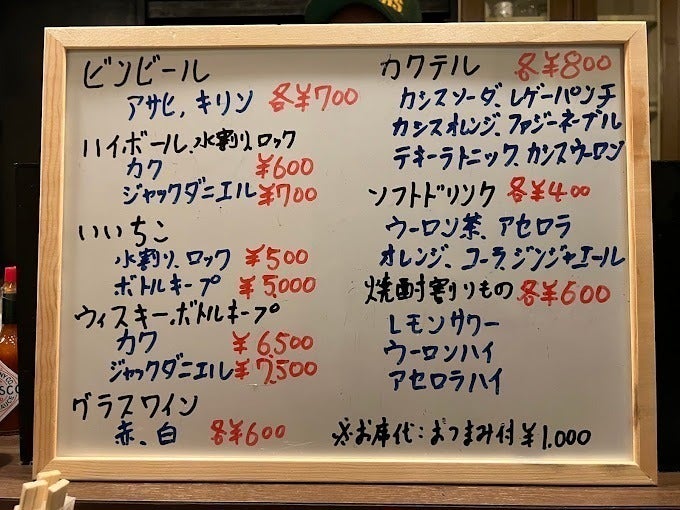 ビンビール
アサヒ、キリン 各¥700
ハイボール、水割り、ロック
カク ¥600
ジャックダニエル ¥700
いいちこ
水割り、ロック ¥500
ボトルキープ ¥5,000
ウィスキー、ボトルキープ
カク ¥6,500
ジャックダニエル ¥7,500
グラスワイン
赤、白 各¥600
カクテル 各¥800
カシスソーダ、レゲーパンチ
カシスオレンジ、ファジーネーブル
テキーラトニック、カシスウーロン
ソフトドリンク 各¥400
ウーロン茶、アセロラ
オレンジ、コーラ、ジンジャエール
焼酎割りもの 各¥600
レモンサワー
ウーロンハイ
アセロラハイ
※お席代：おつまみ付¥1.000